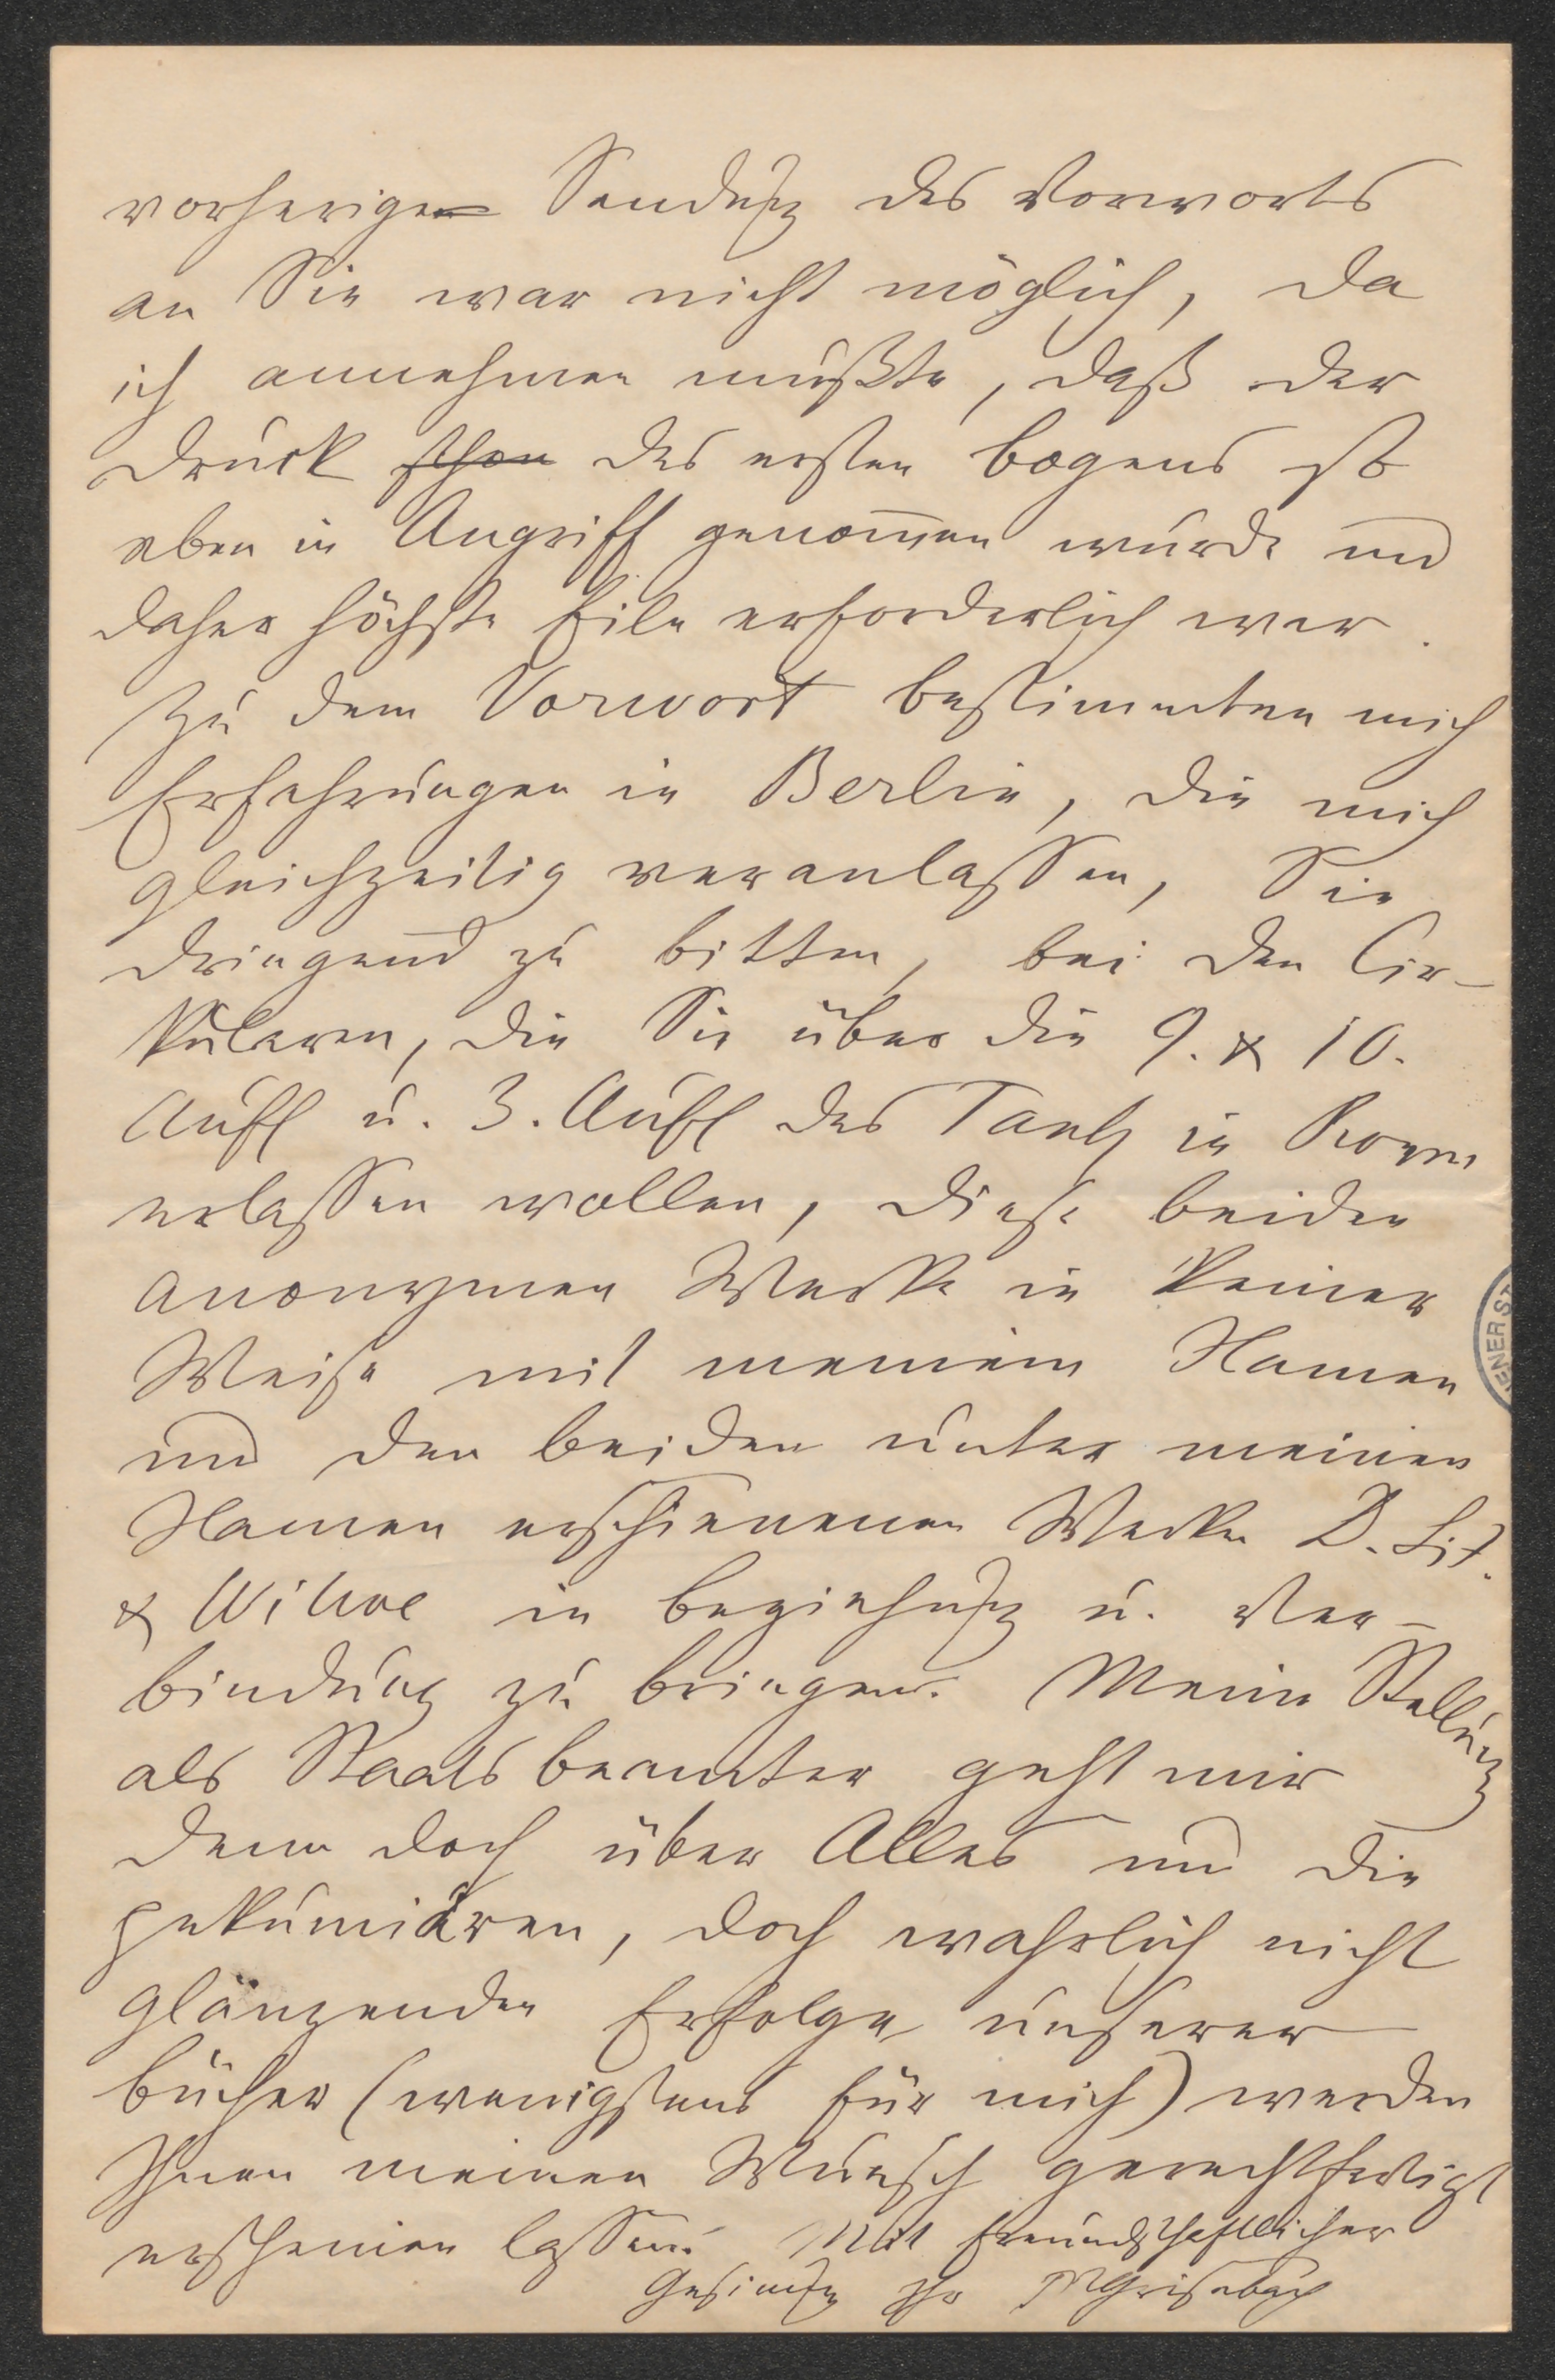 vorherige Sendung des Vorworts
an Sie war nicht möglich, da
ich annehmen mußte, daß der
Druck schon des ersten Bogens so
eben in Angriff genom̄en wurde und
daher höchste Eile erforderlich war.
Zu dem Vorwort bestimmten mich
Erfahrungen in Berlin, die mich
gleichzeitig veranlassen, Sie
dringend zu bitten, bei den Cir-
kularen, die Sie über die 9. & 10.
Aufl u. 3. Aufl des Tanh in Rom
erlassen wollen, diese beiden
anonymen Werke in keiner
Weise mit meinem Namen
und den beiden unter meinem
Namen erschienenen Werken D. Lit.
& Witwe in Beziehung u. Ver-
bindung zu bringen. Meine Stellung
als Staatsbeamter geht mir
denn doch über Alles und die
pekuniären, doch wahrlich nicht
glänzenden Erfolge unserer
Bücher (wenigstens für mich) werden
Ihnen meinen Wunsch gerechtfertigt
erscheinen lassen. Mit freundschaftlicher
Gesinnung Ihr Grisebach
ENER ST